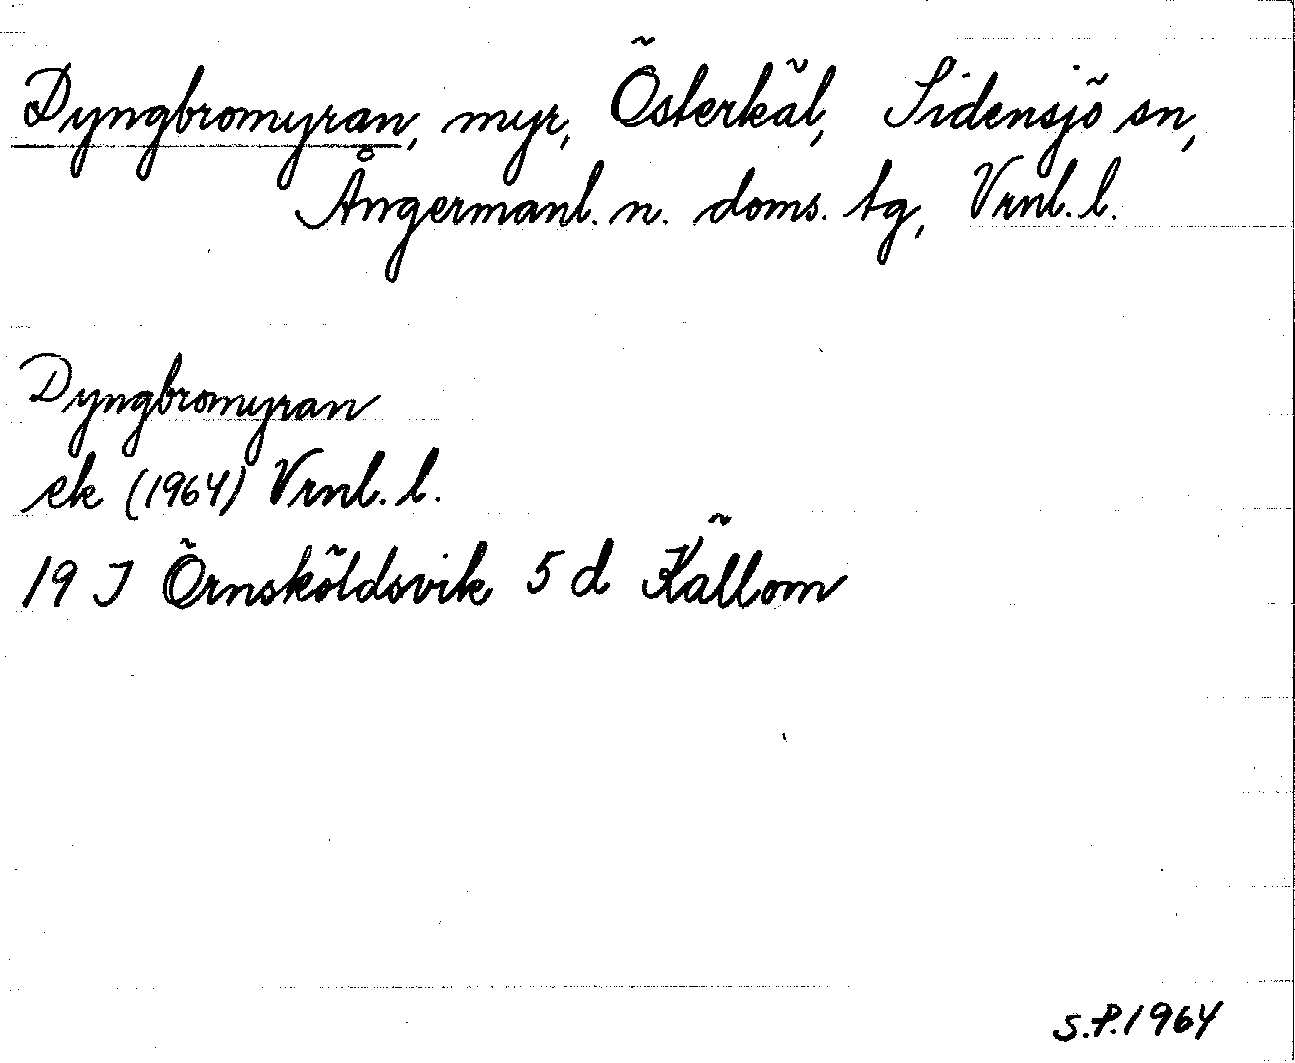 Dyngbromyran, myr, Österkäl, Sidensjö sn,
Ångermanl. n. doms. tg, Vrnl. l.
Dyngbromyran
ek (1964) Vrnl. l.
19 J Örnsköldsvik 5 d Källom
S.P. 1964